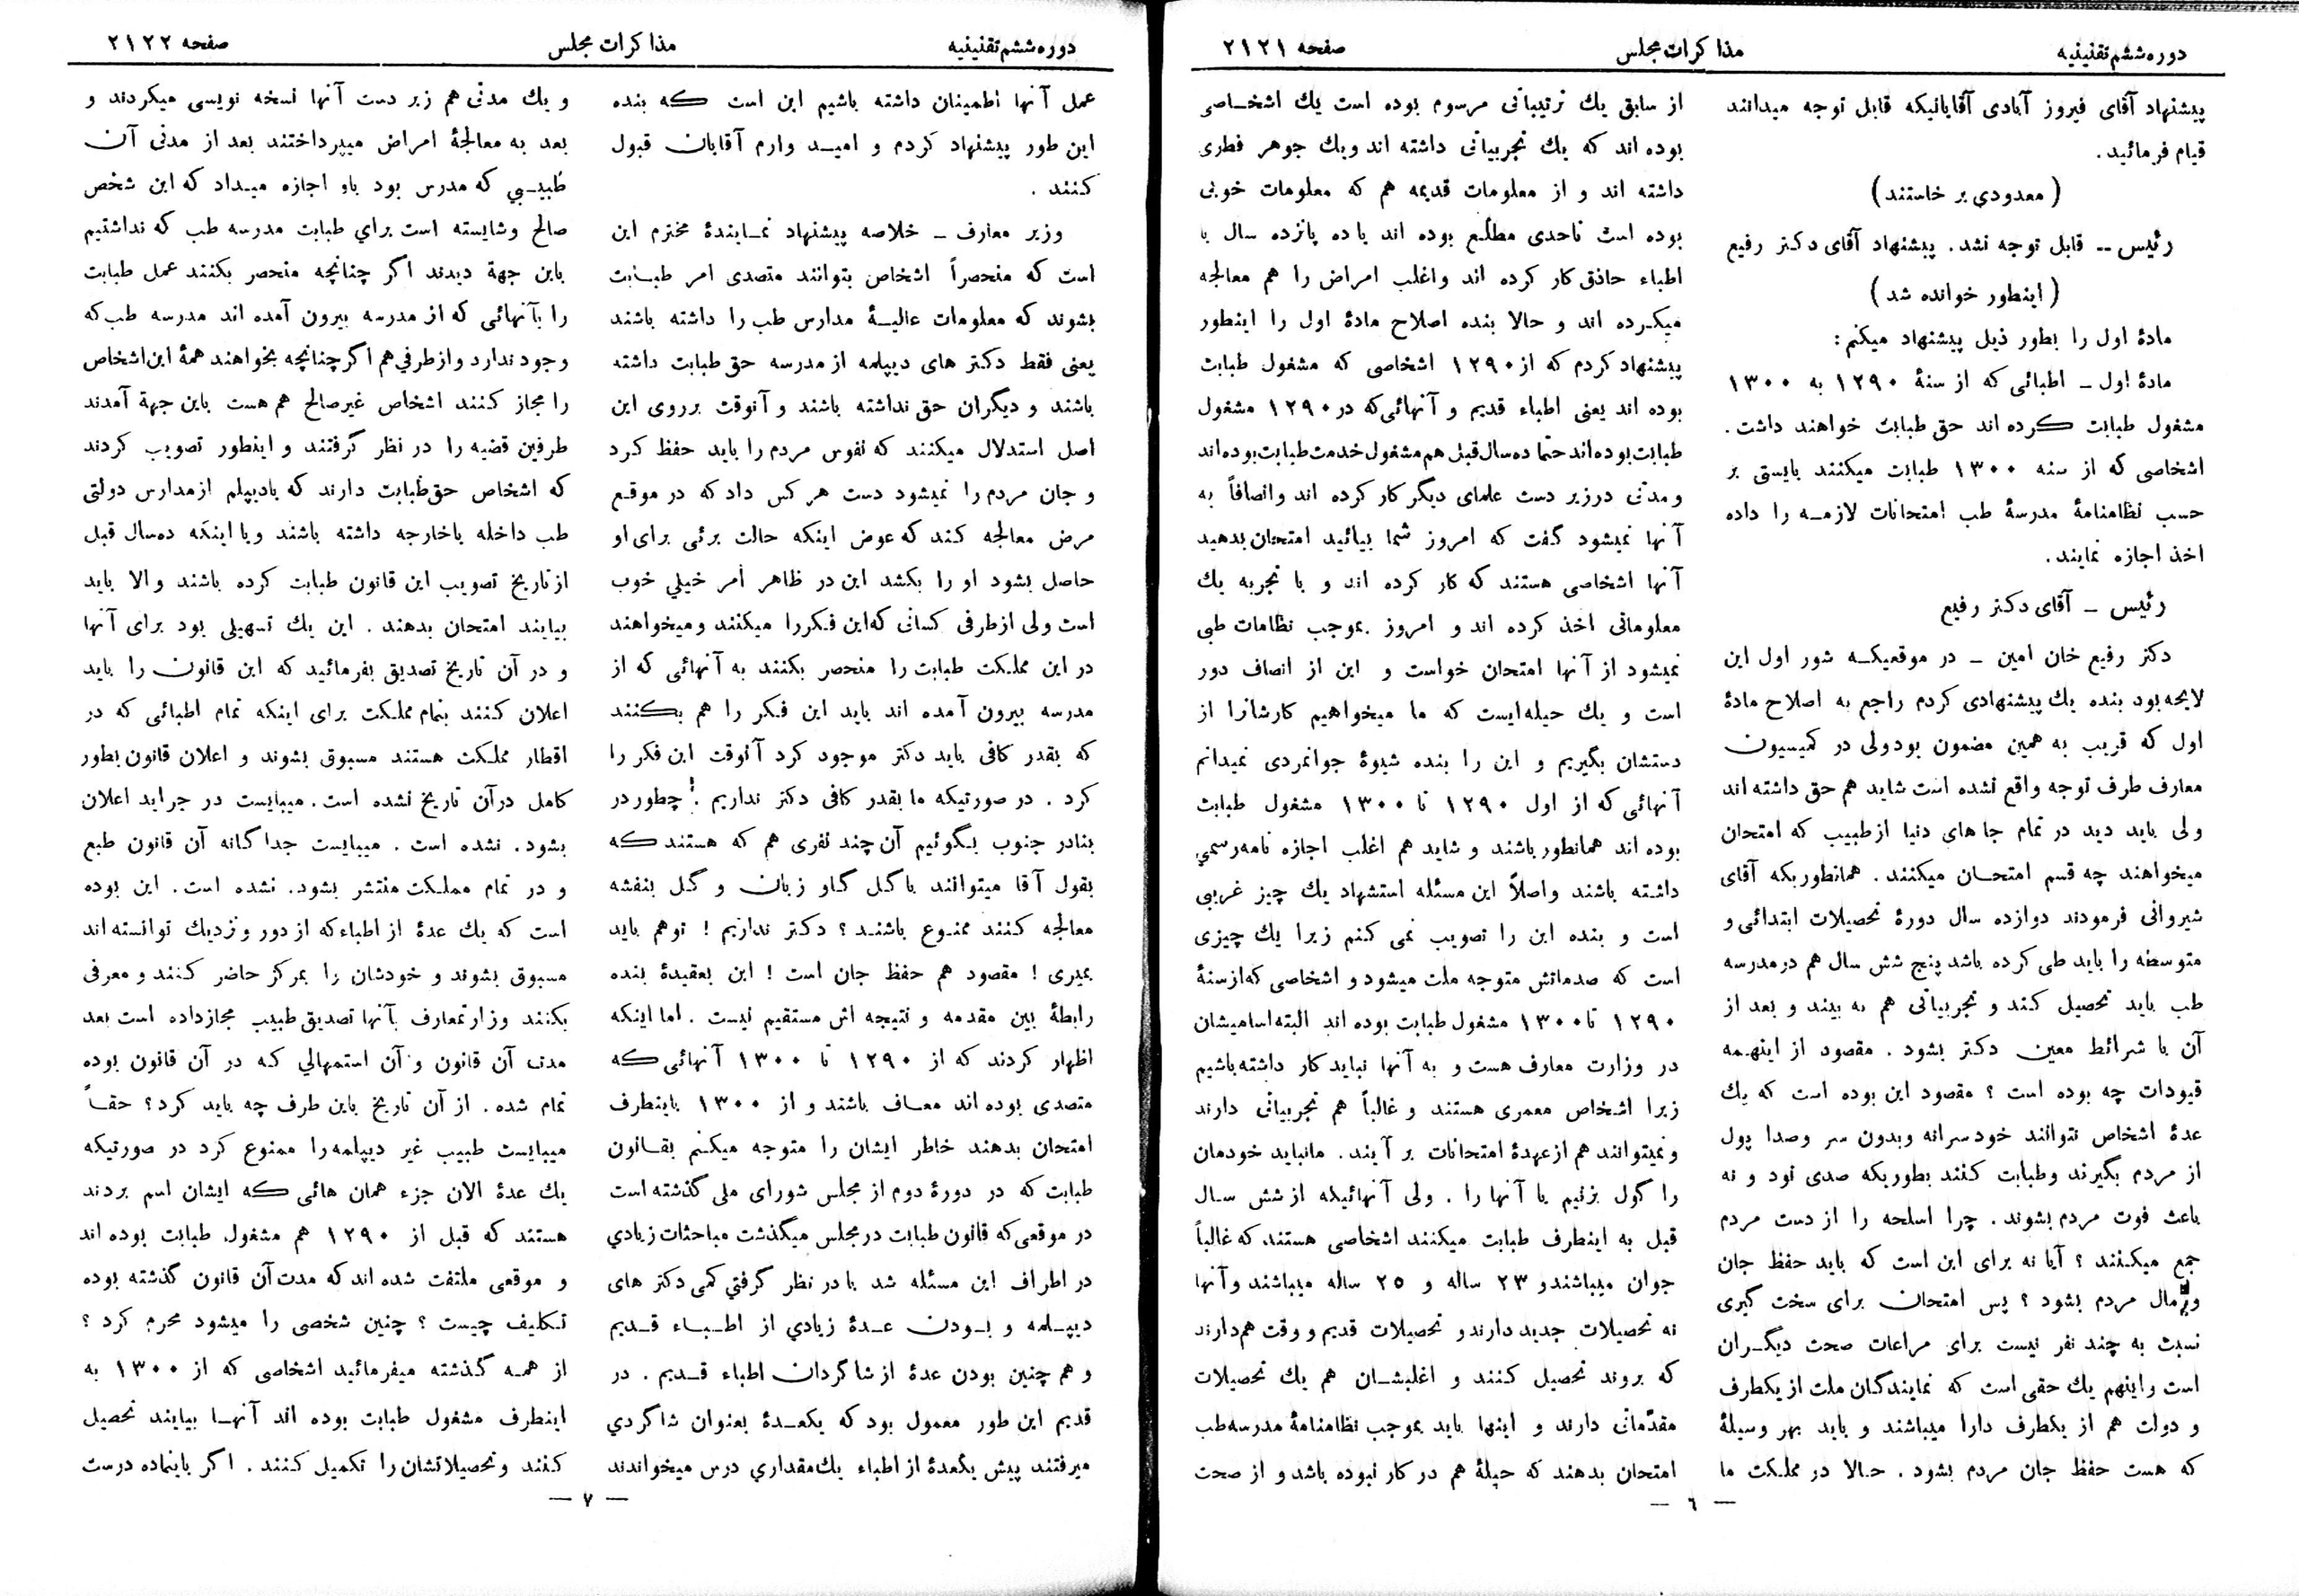 دوره ششم تقنینیه
مذاکرات مجلس
صفحه ۲۱۲۱
پیشنهاد آقای فیروز آبادی آقایانیکه قابل توجه میدانند
قیام فرمائید.
( معدودی بر خاستند )
رئیس -- قابل توجه نشد. پیشنهاد آقای دکتر رفیع
( اینطور خوانده شد )
مادهٔ اول را بطور ذیل پیشنهاد میکنم:
مادهٔ اول - اطبائی که از سنهٔ ۱۲۹۰ به ۱۳۰۰
مشغول طبابت کرده اند حق طبابت خواهند داشت.
اشخاصی که از سنه ۱۳۰۰ طبابت میکنند بایستی بر
حسب نظامنامهٔ مدرسهٔ طب امتحانات لازمه را داده
اخذ اجازه نمایند.
رئیس - آقای دکتر رفیع
دکتر رفیع خان امین - در موقعیکه شور اول این
لایحه بود بنده یك پیشنهادی کردم راجع به اصلاح مادهٔ
اول که قریب به همین مضمون بود ولی در کمیسیون
معارف طرف توجه واقع نشده است شاید هم حق داشته اند
ولی باید دید در تمام جا های دنیا از طبیب که امتحان
میخواهند چه قسم امتحان میکنند. همانطوریکه آقای
شیروانی فرمودند دوازده سال دورهٔ تحصیلات ابتدائی و
متوسطه را باید طی کرده باشد پنج شش سال هم در مدرسه
طب باید تحصیل کند و تجربیاتی هم به بیند و بعد از
آن با شرائط معین دکتر بشود. مقصود از اینهمه
قیودات چه بوده است ؟ مقصود این بوده است که یك
عدهٔ اشخاص نتوانند خود سرانه وبدون سر وصدا پول
از مردم بگیرند وطبابت کنند بطوریکه صدی نود و نه
باعث فوت مردم بشوند. چرا اسلحه را از دست مردم
جمع میکنند ؟ آیا نه برای این است که باید حفظ جان
و مال مردم بشود ؟ پس امتحان برای سخت گیری
نسبت به چند نفر نیست برای مراعات صحت دیگران
است واینهم یك حقی است که نمایندگان ملت از یکطرف
و دولت هم از یکطرف دارا میباشند و باید بهر وسیلهٔ
که هست حفظ جان مردم بشود. حالا در مملکت ما
از سابق یك ترتیباتی مرسوم بوده است یك اشخاصی
بوده اند که یك تجربیاتی داشته اند ویك جوهر فطری
داشته اند و از معلومات قدیمه هم که معلومات خوبی
بوده است تاحدی مطلع بوده اند یا ده پانزده سال با
اطباء حاذق کار کرده اند واغلب امراض را هم معالجه
میکرده اند و حالا بنده اصلاح مادهٔ اول را اینطور
پیشنهاد کردم که از ۱۲۹۰ اشخاصی که مشغول طبابت
بوده اند یعنی اطباء قدیم و آنهائی که در ۱۲۹۰ مشغول
طبابت بوده اند حتما ده سال قبل هم مشغول خدمت طبابت بوده اند
و مدتی در زیر دست علمای دیگر کار کرده اند وانصافاً به
آنها نمیشود گفت که امروز شما بیائید امتحان بدهید
آنها اشخاصی هستند که کار کرده اند و با تجربه یك
معلوماتی اخذ کرده اند و امروز بموجب نظامات طبی
نمیشود از آنها امتحان خواست و این از انصاف دور
است و یك حیله ایست که ما میخواهیم کارشانرا از
دستشان بگیریم و این را بنده شیوهٔ جوانمردی نمیدانم
آنهائی که از اول ۱۲۹۰ تا ۱۳۰۰ مشغول طبابت
بوده اند همانطور باشند و شاید هم اغلب اجازه نامه رسمي
داشته باشند واصلاً این مسئله استشهاد یك چیز غریبی
است و بنده این را تصویب نمی کنم زیرا یك چیزی
است که صدماتش متوجه ملت میشود و اشخاصی که از سنهٔ
۱۲۹۰ تا ۱۳۰۰ مشغول طبابت بوده اند البته اسامیشان
در وزارت معارف هست و به آنها نباید کار داشته باشیم
زیرا اشخاص معمری هستند و غالباً هم تجربیاتی دارند
ونمیتوانند هم از عهدهٔ امتحانات بر آیند. مانباید خودمان
را گول بزنیم یا آنها را. ولی آنهائیکه از شش سال
قبل به اینطرف طبابت میکنند اشخاصی هستند که غالباً
جوان میباشند و ۲۳ ساله و ۲۵ ساله میباشند وآنها
نه تحصیلات جدید دارند و تحصیلات قدیم و وقت هم دارند
که بروند تحصیل کنند و اغلبشان هم یك تحصیلات
مقدماتی دارند و اینها باید بموجب نظامنامهٔ مدرسه طب
امتحان بدهند که حیلهٔ هم در کار نبوده باشد و از صحت
— ٦ —
دوره ششم تقنینیه
مذاکرات مجلس
صفحه ۲۱۲۲
عمل آنها اطمینان داشته باشیم این است که بنده
این طور پیشنهاد کردم و امید وارم آقایان قبول
کنند .
وزیر معارف - خلاصه پیشنهاد نمایندهٔ محترم این
است که منحصراً اشخاص بتوانند متصدی امر طبابت
بشوند که معلومات عالیهٔ مدارس طب را داشته باشند
یعنی فقط دکتر های دیپلمه از مدرسه حق طبابت داشته
باشند و دیگران حق نداشته باشند و آنوقت بر روی این
اصل استدلال میکنند که نفوس مردم را باید حفظ کرد
و جان مردم را نمیشود دست هر کس داد که در موقع
مرض معالجه کند که عوض اینکه حالت برئی برای او
حاصل بشود او را بکشد این در ظاهر امر خیلي خوب
است ولی از طرفی کسانی که این فکر را میکنند و میخواهند
در این مملکت طبابت را منحصر بکنند به آنهائی که از
مدرسه بیرون آمده اند باید این فکر را هم بکنند
که بقدر کافی باید دکتر موجود کرد آنوقت این فکر را
کرد . در صورتیکه ما بقدر کافی دکتر نداریم ! چطور در
بنادر جنوب بگوئیم آن چند نفری هم که هستند که
بقول آقا میتوانند با گل گاو زبان و گل بنفشه
معالجه کنند ممنوع باشند ؟ دکتر نداریم ! توهم باید
بمیری ! مقصود هم حفظ جان است ! این بعقیدهٔ بنده
رابطهٔ بین مقدمه و نتیجه اش مستقیم نیست . اما اینکه
اظهار کردند که از ۱۲۹۰ تا ۱۳۰۰ آنهائی که
متصدی بوده اند معاف باشند و از ۱۳۰۰ باینطرف
امتحان بدهند خاطر ایشان را متوجه میکنم بقانون
طبابت که در دورهٔ دوم از مجلس شورای ملی گذشته است
در موقعی که قانون طبابت در مجلس میگذشت مباحثات زیادي
در اطراف این مسئله شد با در نظر گرفتي کمی دکتر های
دیپلمه و بودن عدهٔ زیادي از اطباء قدیم
و هم چنین بودن عدهٔ از شاگردان اطباء قدیم . در
قدیم این طور معمول بود که یکعدهٔ بعنوان شاگردي
میرفتند پیش یکعدهٔ از اطباء یك مقداري درس میخواندند
و یك مدتی هم زیر دست آنها نسخه نویسی میکردند و
بعد به معالجهٔ امراض میپرداختند بعد از مدتی آن
طبیبي که مدرس بود باو اجازه میداد که این شخص
صالح وشایسته است براي طبابت مدرسه طب که نداشتیم
باین جهة دیدند اگر چنانچه منحصر بکنند عمل طبابت
را بآنهائی که از مدرسه بیرون آمده اند مدرسه طب که
وجود ندارد و از طرفي هم اگر چنانچه بخواهند همهٔ این اشخاص
را مجاز کنند اشخاص غیر صالح هم هست باین جهة آمدند
طرفین قضیه را در نظر گرفتند و اینطور تصویب کردند
که اشخاص حق طبابت دارند که یا دیپلم از مدارس دولتی
طب داخله یا خارجه داشته باشند ویا اینکه ده سال قبل
از تاریخ تصویب این قانون طبابت کرده باشند والا باید
بیایند امتحان بدهند . این یك تسهیلی بود برای آنها
و در آن تاریخ تصدیق بفرمائید که این قانون را باید
اعلان کنند بتمام مملکت برای اینکه تمام اطبائی که در
اقطار مملکت هستند مسبوق بشوند و اعلان قانون بطور
کامل در آن تاریخ نشده است. میبایست در جراید اعلان
بشود. نشده است . میبایست جدا گانه آن قانون طبع
و در تمام مملکت منتشر بشود. نشده است. این بوده
است که یك عدهٔ از اطباء که از دور و نزدیك توانسته اند
مسبوق بشوند و خودشان را بمرکز حاضر کنند و معرفی
بکنند وزارتمعارف بآنها تصدیق طبیب مجاز داده است بعد
مدت آن قانون و آن استمهالي که در آن قانون بوده
تمام شده. از آن تاریخ باین طرف چه باید کرد ؟ حقاً
میبایست طبیب غیر دیپلمه را ممنوع کرد در صورتیکه
یك عدهٔ الان جزء همان هائی که ایشان اسم بردند
هستند که قبل از ۱۲۹۰ هم مشغول طبابت بوده اند
و موقعی ملتفت شده اند که مدت آن قانون گذشته بوده
تکلیف چیست ؟ چنین شخصی را میشود محرم کرد ؟
از همه گذشته میفرمائید اشخاصی که از ۱۳۰۰ به
اینطرف مشغول طبابت بوده اند آنها بیایند تحصیل
کنند و تحصیلاتشان را تکمیل کنند . اگر باینماده درست
— ۷ —